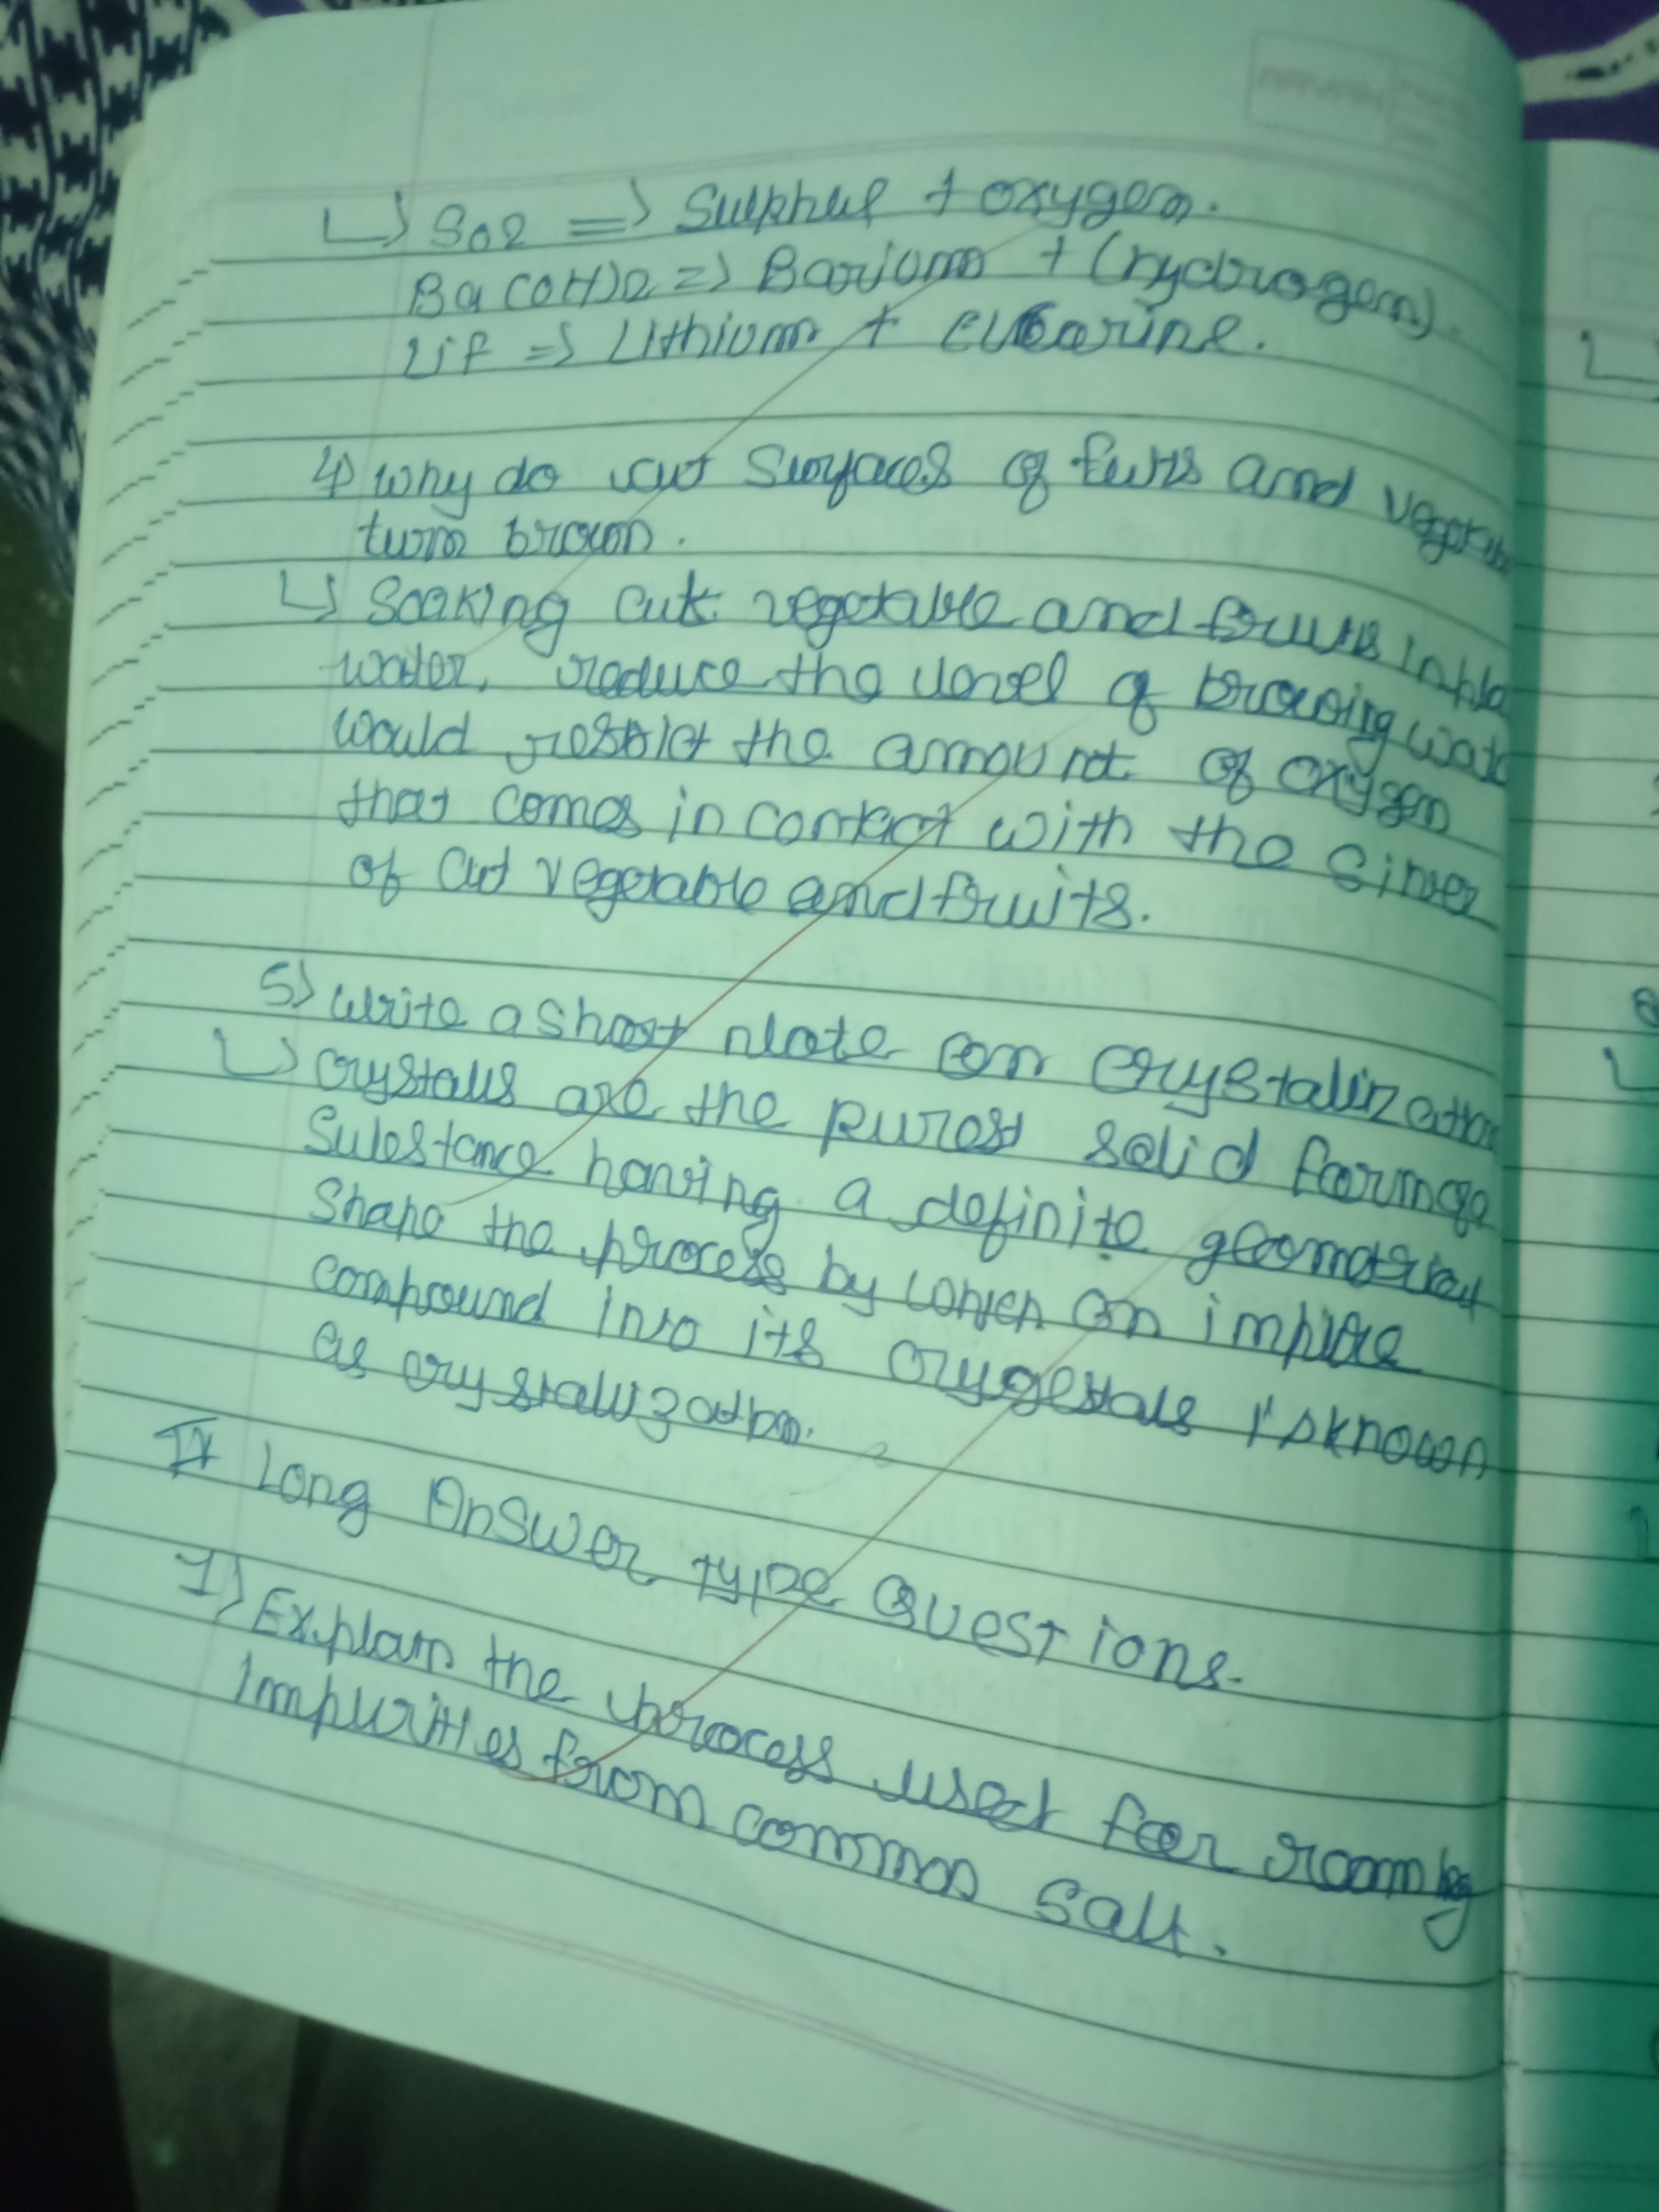 ↳ SO2 => Sulphur + oxygen.
Ba(OH)2 => Barium + (hydrogen).
Lif => Lithium + 
4) Why do cut Surfaces of and vegetab
turn brown.
↳ Soaking cut vegetable and fruits in pla
water, reduce the level of browing wat
would restrict the amount of oxygen
that comes in contact with the
of cut vegetable and fruits.
5) Write a short note on crystalization
↳ crystalls are the purest solid form of a
Substance having a definite geometrical
Shape the process by which an
compound into its is known
as crystallization.
II Long Answer type Questions.
1) Explain the process used for
Impurities from common Salt.